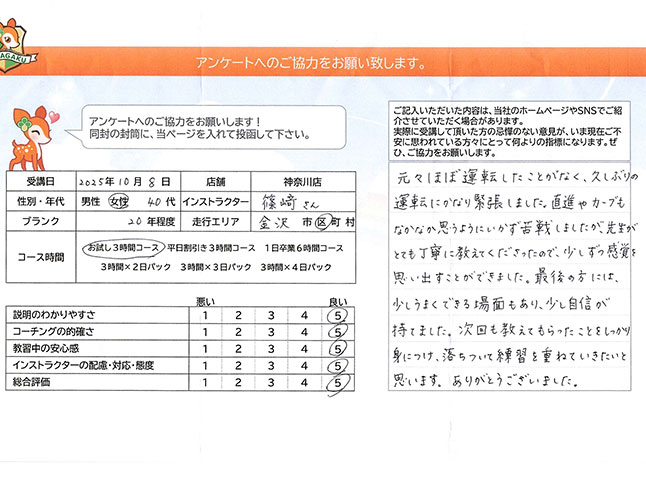 AGAKU
アンケートへのご協力をお願い致します。
アンケートへのご協力をお願いします！
同封の封筒に、当ページを入れて投函して下さい。
ご記入いただいた内容は、当社のホームページやSNSでご紹
介させていただく場合があります。
実際に受講して頂いた方の忌憚のない意見が、いま現在ご不
安に思われている方々にとって何よりの指標になります。ぜ
ひ、ご協力をお願いします。
受講日 2025年10月8日 店舗 神奈川店
性別・年代 男性 女性 40代 インストラクター 篠崎さん
ブランク 20年程度 走行エリア 金沢 市区町村
コース時間 お試し3時間コース 平日割引き3時間コース 1日卒業6時間コース
3時間×2日パック 3時間×3日パック 3時間×4日パック
悪い 良い
説明のわかりやすさ 1 2 3 4 5
コーチングの的確さ 1 2 3 4 5
教習中の安心感 1 2 3 4 5
インストラクターの配慮・対応・態度 1 2 3 4 5
総合評価 1 2 3 4 5
元々ほぼ運転したことがなく、久しぶりの
運転にかなり緊張しました。直進やカーブも
なかなか思うようにいかず苦戦しましたが、先生が
とても丁寧に教えてくださったので、少しずつ感覚を
思い出すことができました。最後の方には、
少しうまくできる場面もあり、少し自信が
持てました。次回も教えてもらったことをしっかり
身につけ、落ちついて練習を重ねていきたいと
思います。ありがとうございました。